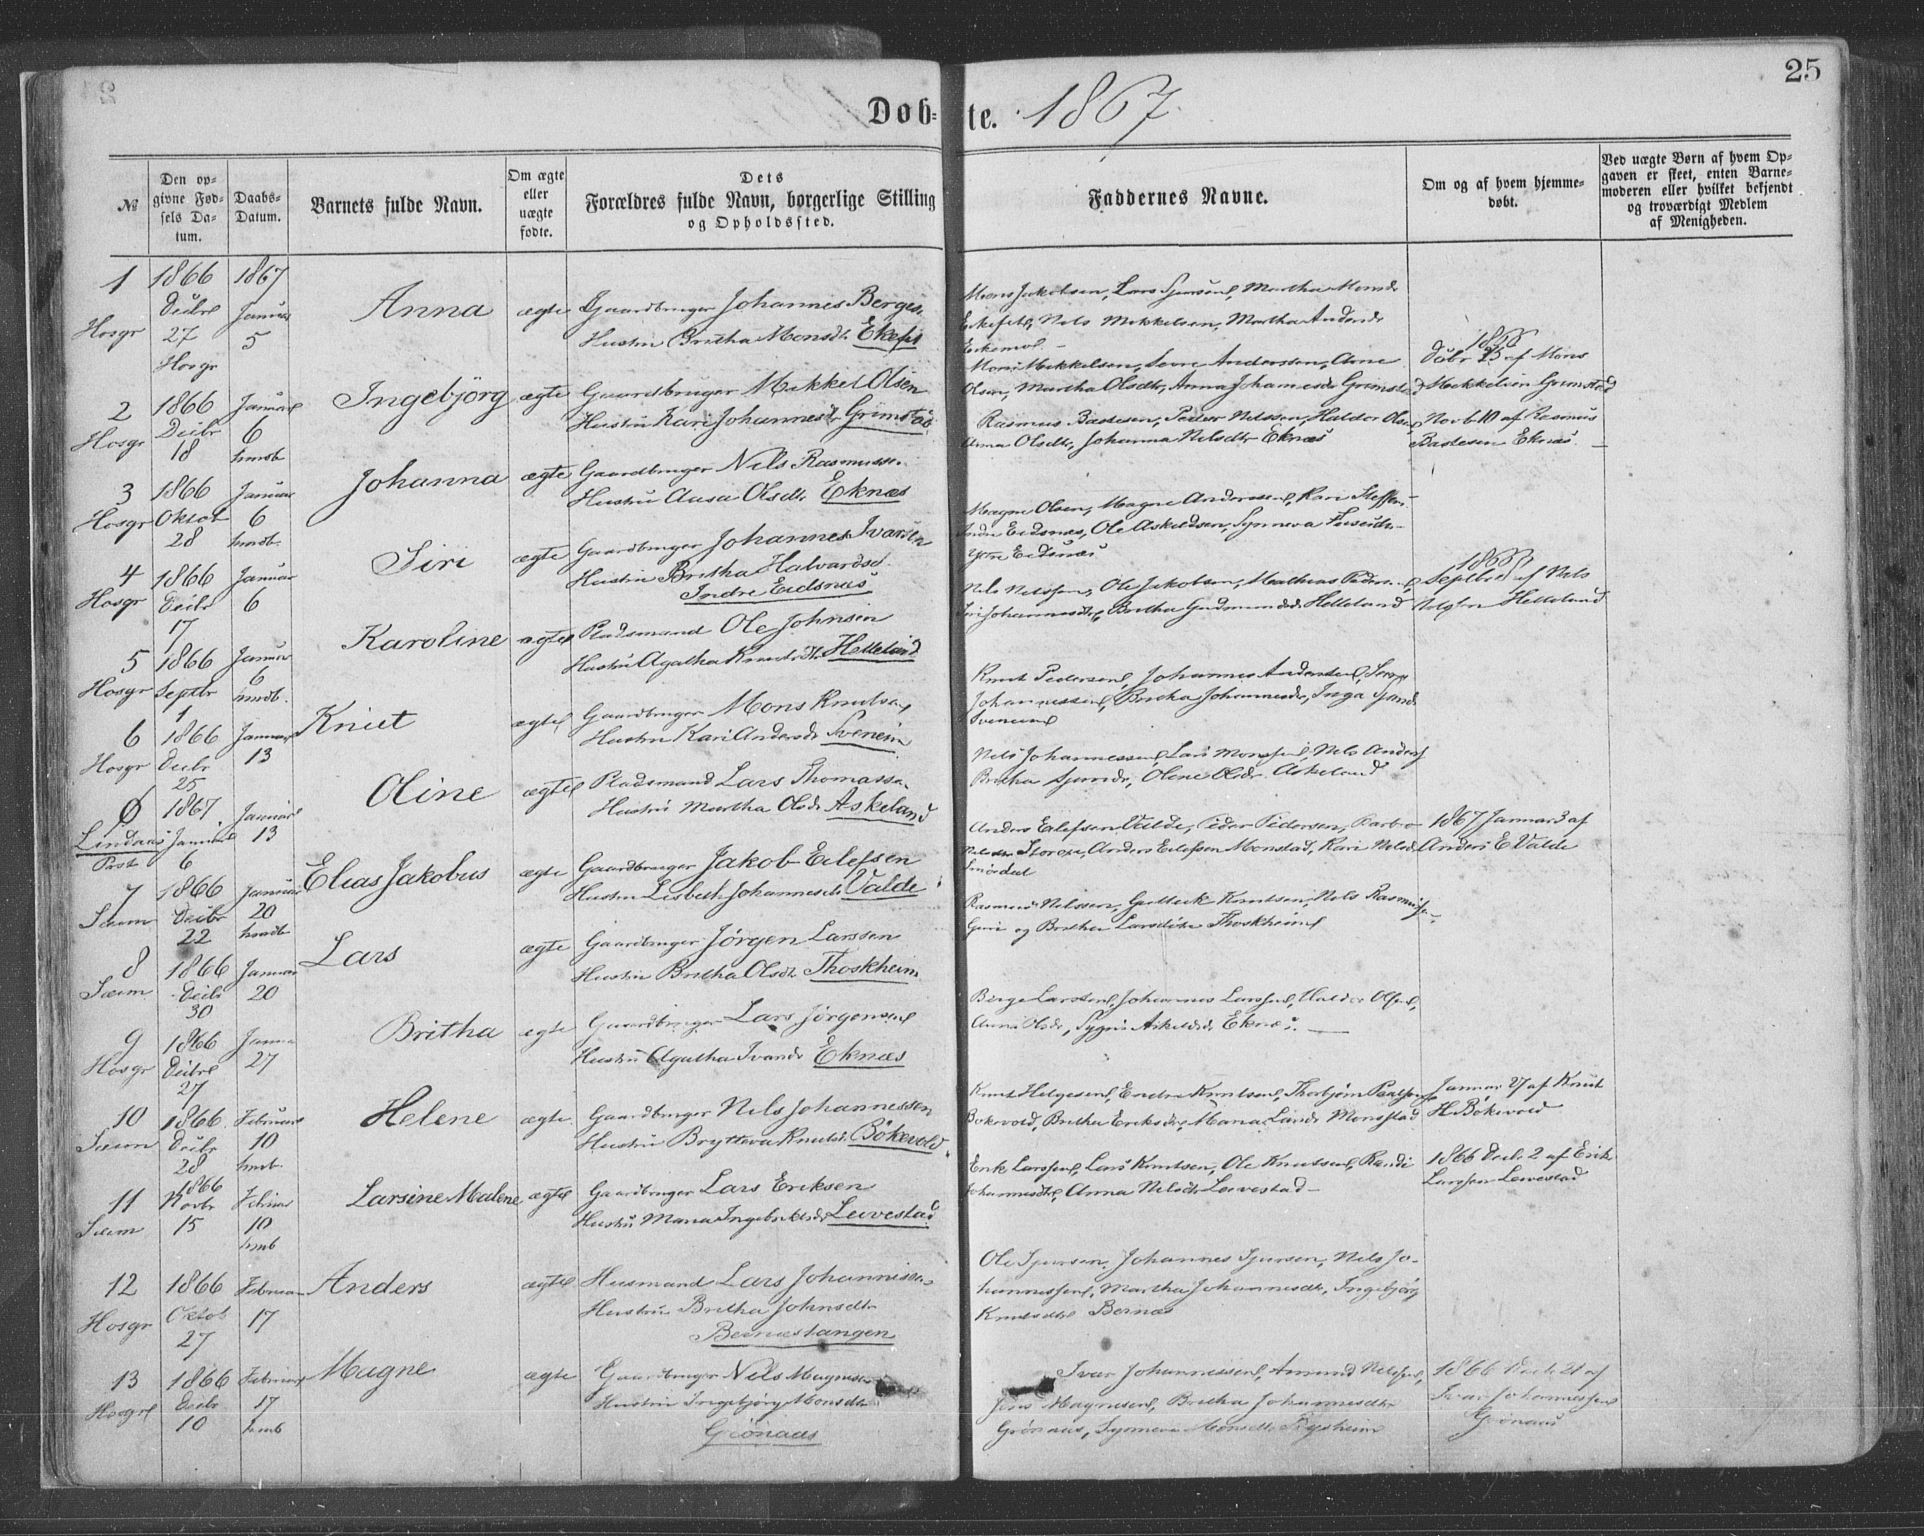 25
Døb= te. 1867.
№
Den op=
givne Fød=
sels Da=
tum.
Daabs=
Datum.
Barnets fulde Navn.
Om ægte
eller
uægte
fødte.
Dets
Forældres fulde Navn, borgerlige Stilling
og Opholdssted.
Faddernes Navne.
Om og af hvem hjemme=
døbt.
Ved uægte Børn af hvem Op=
gaven er skeet, enten Barne=
moderen eller hvilket bekjendt
og troværdigt Medlem
af Menigheden.
1
Hosgr
1866
Decbr
27
Hosgr
1867
Januar
5
Anna
ægte
Gaardbruger Johannes Berges.
Hustru Britha Monsdtr
Mons Jakobsen, Lars Sjursen, Martha Monsdr
Nels Mikkelsen, Martha Andersdr
2
Hosgr
1866
Decbr
18
Januar
6
hmdb
Ingebjörg
ægte
Gaardbruger Mikkel Olsen
Hustru Kari Johannesdr Grimstad
Mons Mikkelsen, Andersen, Arne
Olsen, Martha Olsdtr, Anna Johannesdr Grimstad
af Mons
Mikkelsen Grimstad
3
Hosgr
1866
Oktob
28
Januar
6
hmdb.
Johanna
ægte
Gaardbruger Nils Rasmussen
Hustru Olsdtr Eknæs
Rasmus Bastesen, Peder Nelssen, Haldor Olsen
Anna Olsdtr, Johanna Nilsdtr Eknæs
Novb 10 af Rasmus
Bastesen Eknæs.
4
Hosgr
1866
Decbr
17
Januar
6
Siri
ægte
Gaardbruger Johannes Ivarsen
Hustru Britha Halvardsd
Indre Eidsnæs
Magne Olsen, Magne Andersen, Kari Steffen-
Indre Eidsnæs, Ole Askildsen, Synneva
Ytre Eidsnæs
5
Hosgr
1866
Septbr
1
Januar
6
hmdb.
Karoline
ægte
Pladsmand Ole Johnsen
Hustru Agatha Knutsdtr Helleland
Nils Nilssen, Ole Jakobsen, Mathias Peders.
Johannesdtr, Britha Gudmundsdr Helleland
af Nils
Helleland
6
Hosgr
1866
Decbr
25
Januar
13
Knut
ægte
Gaardbruger Mons Knutsen
Hustru Kari Andersdr Sveneim
Knut Pedersen, Johannes Andersen,
Johannessen, Britha Johannesdr, Inga
Sveneim
Lindaas
Præst
1867.
Januar
6
Januar
13
Oline
ægte
Pladsmand Lars Thomassen
Hustru Martha Olsdr Askeland
Nils Johannessen, Lars Monssen, Nils Anders
Britha Sjursdr, Olene Olsdr Askeland
7
Sæim
1866
Decbr
22
Januar
20
hmdb
Elias Jakobus
ægte
Gaardbruger Jakob Eilefsen
Hustru Lisbeth Johannesdr Valde
Anders Eilefsen Valde, Peder Pedersen,
Anders Eilefsen Monstad, Kari Nilsd
1867 Januar 3 af
Anders E. Valde
8
Sæim
1866
Decbr
30
Januar
20
Lars
ægte
Gaardbruger Jörgen Larssen
Hustru Britha Olsdtr Thoskheim
Rasmus Nilssen, Knutsen, Nils Rasmussen
Guri og Britha Larsdtr Thoskheim
9
Hosgr
1866
Decbr
27
Januar
27
Britha
ægte
Gaardbruger Lars Jörgensen
Hustru Agatha Ivarsdr Eknæs
Birge Larssen, Johannes Larssen, Haldor Olsen,
Anna Olsdr, Askildsdr Eknæs.
10
Sæim
1866
Decbr
28
Februar
10
hmb.
Helene
ægte
Gaardbruger Nils Johannessen
Hustru Brytteva Knutsd. Bökevold
Knut Helgesen, Endre Knutsen, Thorbjörn
Bokevold, Britha Eriksdr, Maria Larsdr Monsstad
Januar 27 af Knut
H. Bökevold
11
Sæim
1866
Novbr
15
Februar
10
hmb
Larsine Malene
ægte
Gaardbruger Lars Eriksen
Hustru Maria Ingebriktsdr Leivestad
Erik Larssen, Lars Knutsen, Ole Knutssen, Randi
Johannesdtr, Anna Nilsdtr Leivestad
1866 Decbr 2 af Erik
Larssen Leivestad
12
Hosgr
1866
Oktob
27
Februar
17
Anders
ægte
Husmand Lars Johannisen
Hustru Britha Johnsdtr
Bernæstangen
Ole Sjursen, Johannes Sjursen, Nils Jo-
hannessen, Martha Johannesdtr, Ingebjörg
Knutsdtr Bernæs
13
Hosgr
1866
Decbr
10
Februar
17
hmb
Magne
ægte
Gaardbruger Nils Magnesen
Hustru Ingebjörg Monsdtr
Grönaas
Ivar Johannessen, Amund Nilssen,
Jens Magnesen, Britha Johannesdtr
Grönaas, Synneva Monsdtr Rysheim
1866 Decbr 21 af
Ivar Johannessen
Grönaas